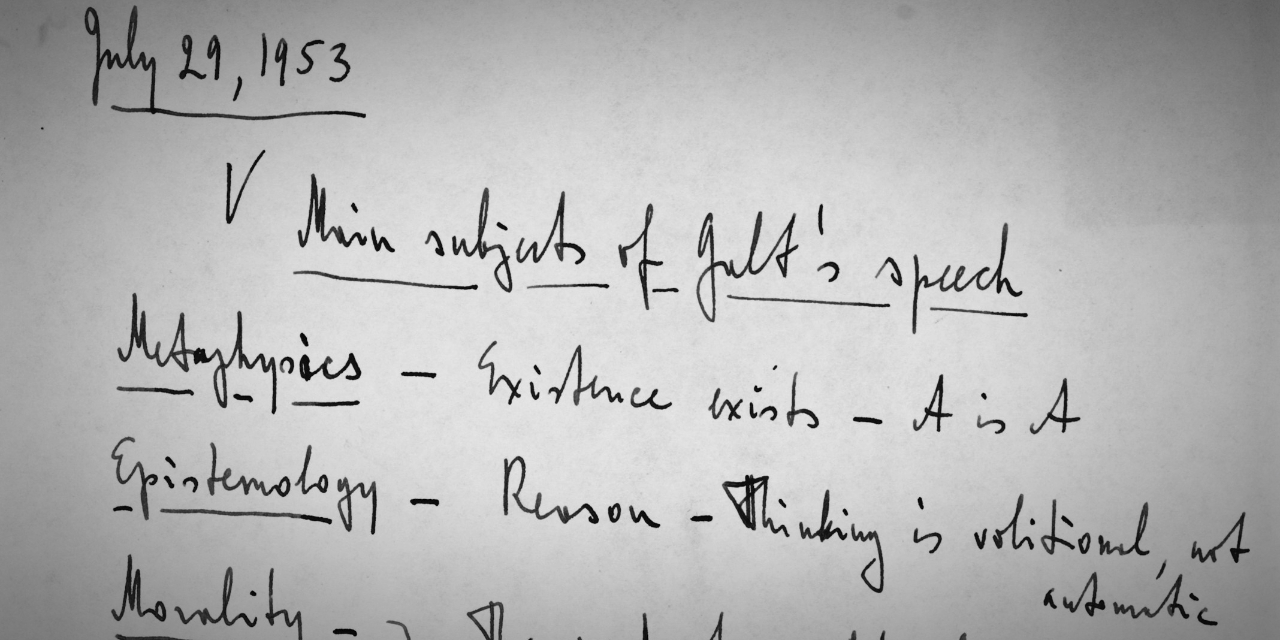 July 29, 1953
V Main subjects of Galt's speech
Metaphysics — Existence exists — A is A
Epistemology — Reason — Thinking is volitional, not
automatic
Morality —